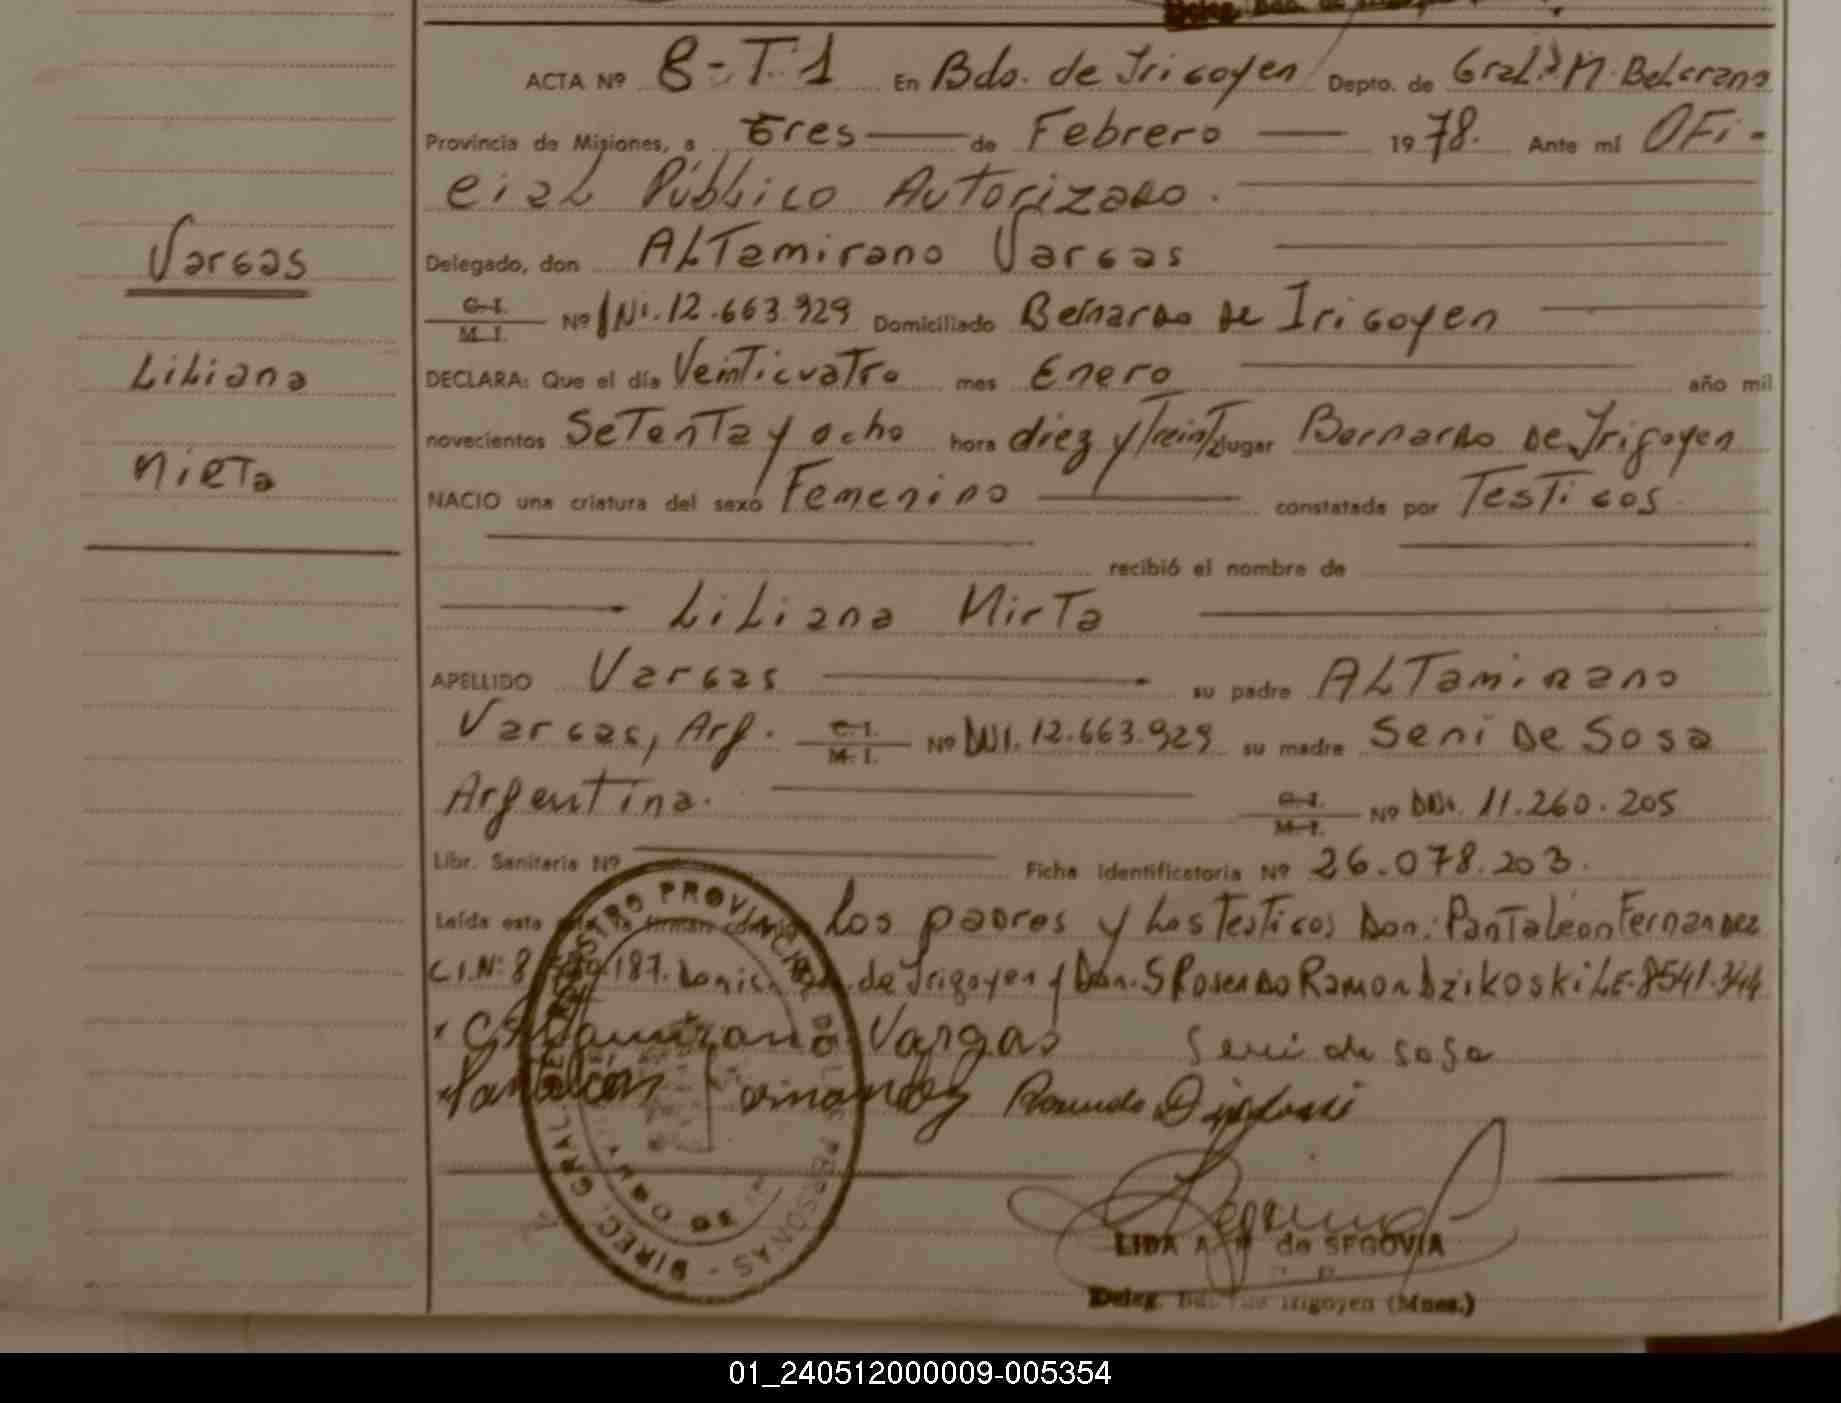 ACTA Nº 8-T.1 En Bdo. de Irigoyen Depto. de Gral. M. Belgrano
Provincia de Misiones, a tres de Febrero 1978. Ante mí OFi-
cial Público Autorizado.
Vargas
Delegado, don Altamirano Vargas
C. I. M. I. Nº DNI. 12.663.929 Domiciliado Bernardo de Irigoyen
Liliana
DECLARA: Que el día Veinticuatro mes Enero año mil
novecientos Setenta y ocho hora diez y Treinta lugar Bernardo de Irigoyen
Mirta
NACIO una criatura del sexo Femenino constatada por Testigos
recibió el nombre de
Liliana Mirta
APELLIDO Vargas su padre Altamirano
Vargas, Arg. C. I. M. I. Nº DNI. 12.663.929 su madre Seni de Sosa
Argentina. C. I. M. I. Nº DNI. 11.260.205
Libr. Sanitaria Nº Ficha Identificatoria Nº 26.078.203.
Leída esta firman Los padres y Los Testigos Don: Pantaleon Fernandez
C.I.Nº 8 187. de Irigoyen y Don. Rosendo Ramon Dzikoski LE-8541.344
Altamirano Vargas Seni de Sosa
Pantaleon Fernandez
REGISTRO PROVINCIAL DE LAS PERSONAS - DIREC. GRAL. DEL
LIDA A. de SEGOVIA
Deleg. Bdo. de Irigoyen (Mnes.)
01_240512000009-005354